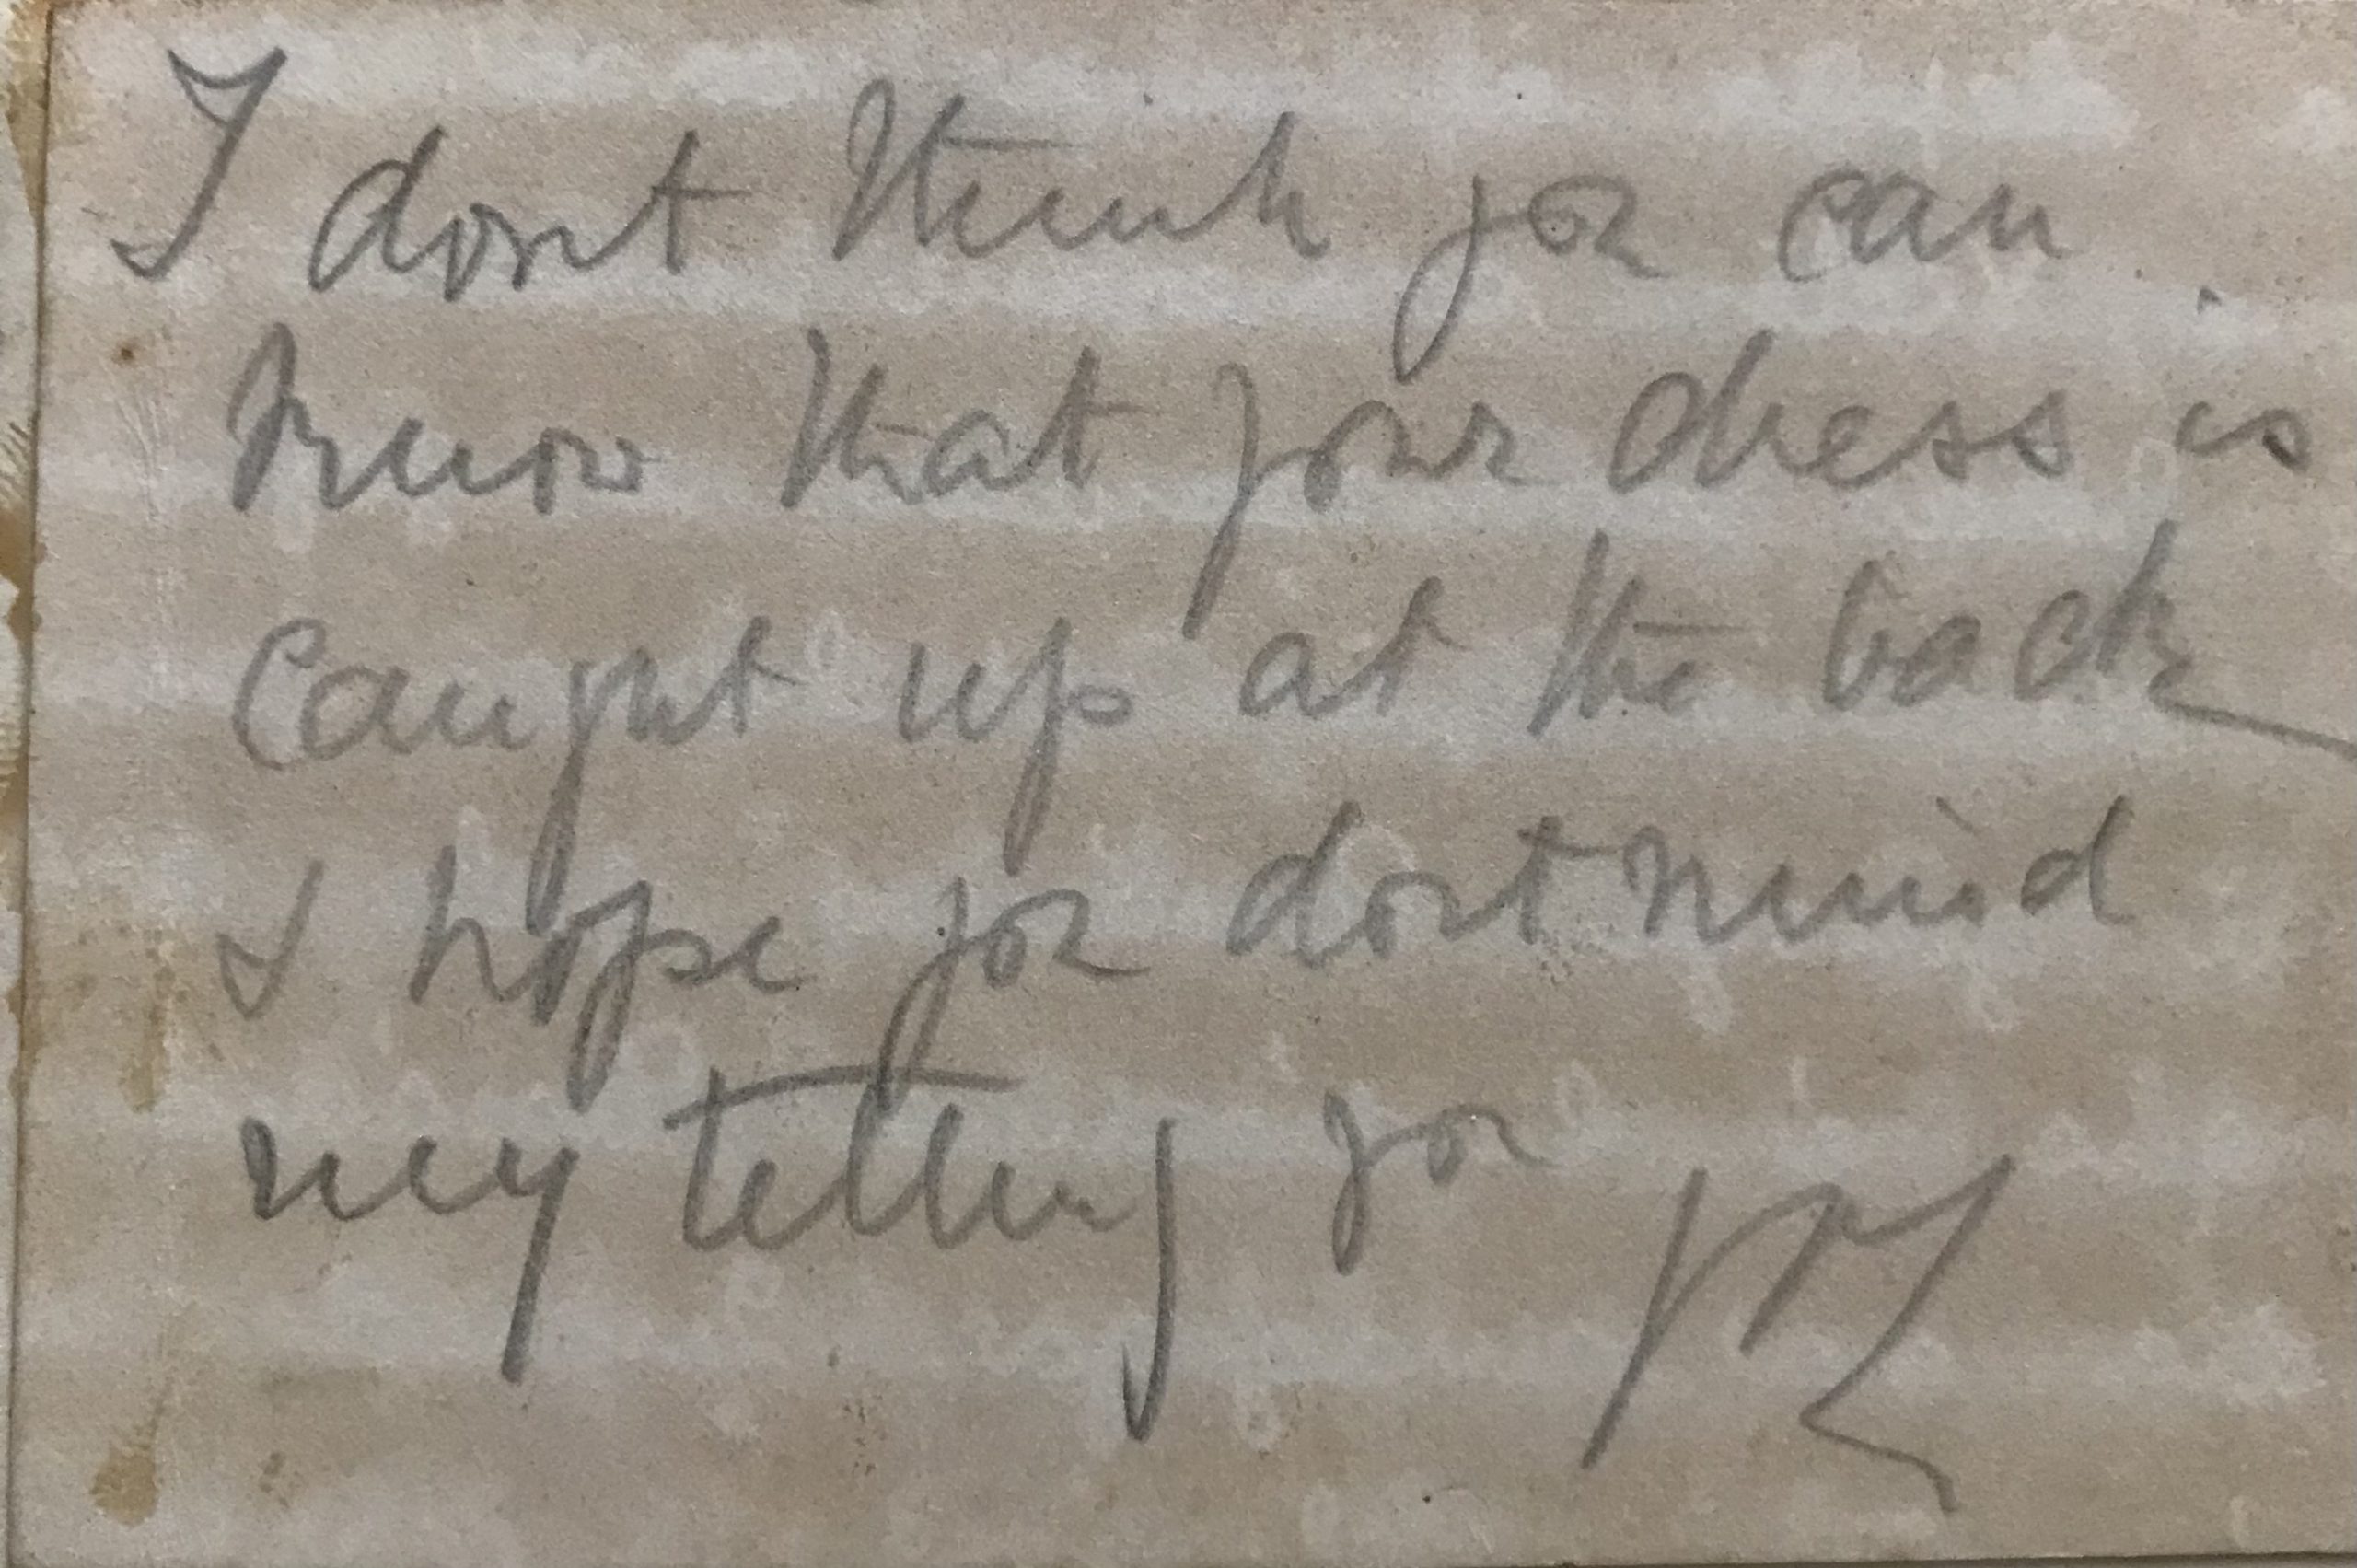 I dont think you can
know that your dress is
caught up at the back
I hope you dont mind
my telling you